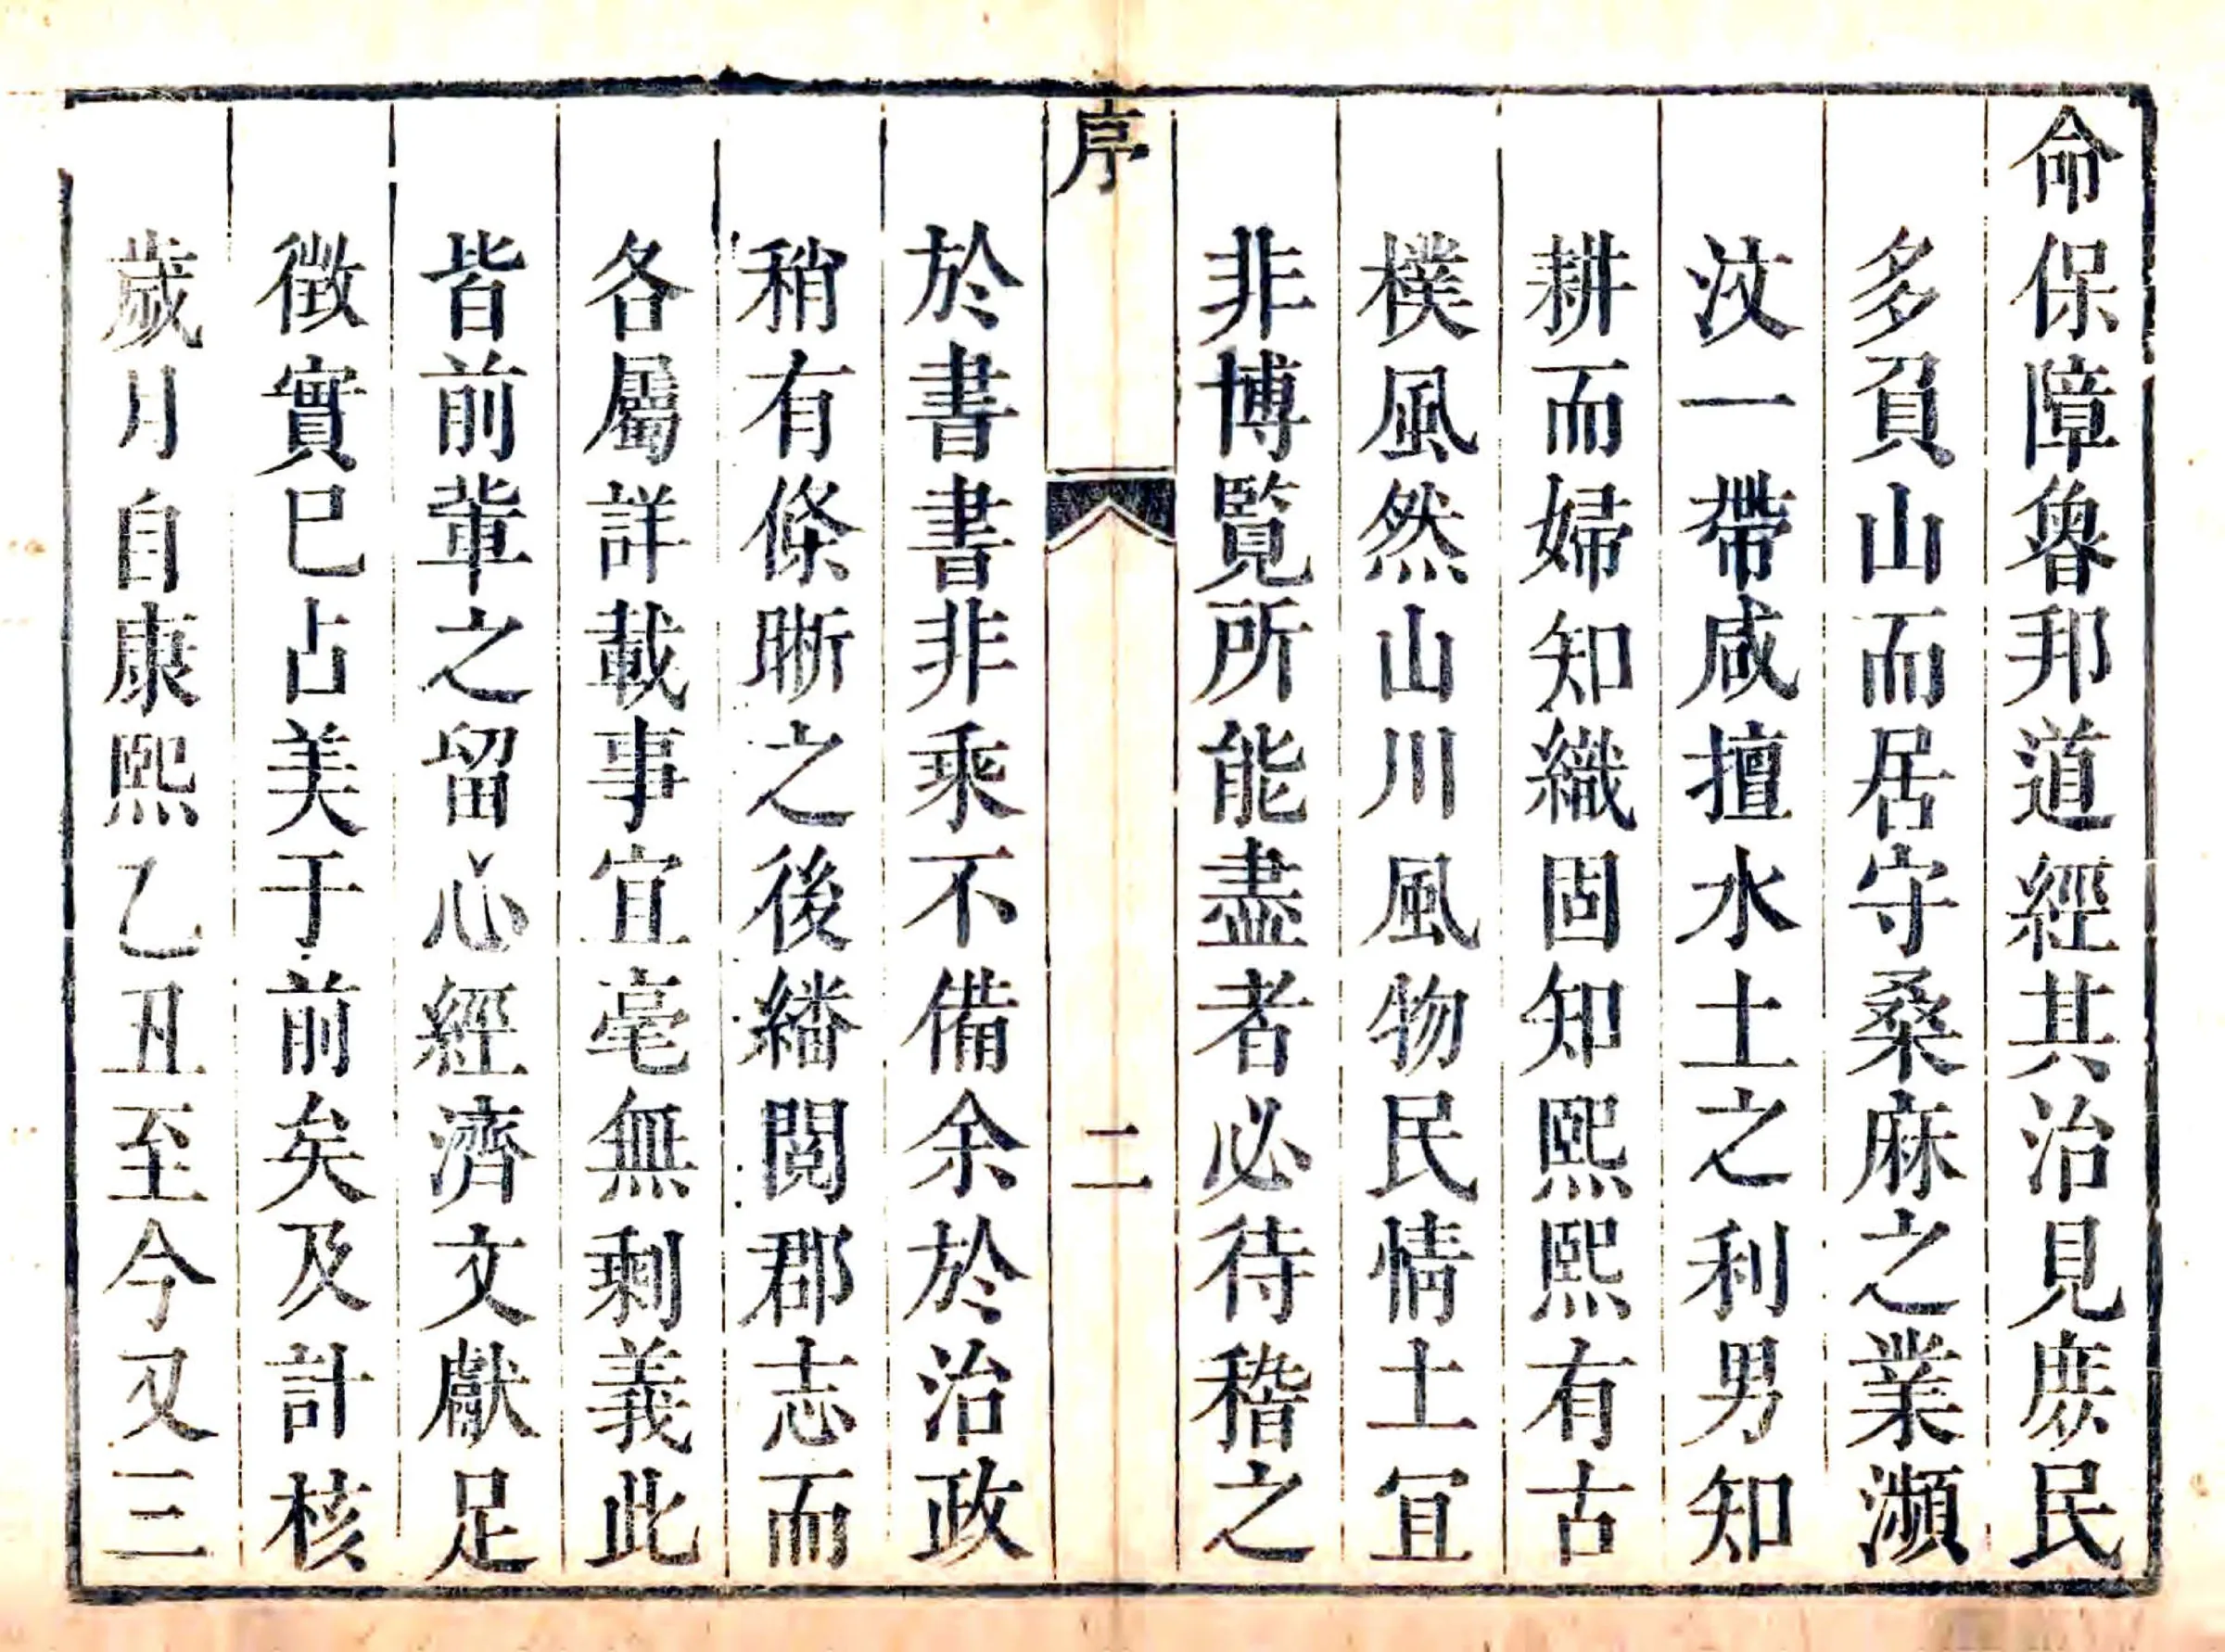 命保障魯邦道經其治見庶民
多負山而居守桑麻之業瀕
汶一帶咸擅水土之利男知
耕而婦知織固知熙熙有古
樸風然山川風物民情土冝
非博覧所能盡者必待稽之
序
二
於書書非乘不備余於治政
稍有條晰之後繙閲郡志而
各屬詳載事宜毫無剩義此
皆前軰之留心經濟文獻足
徴實巳占美于前矣及計核
歲月自康熙乙丑至今又三